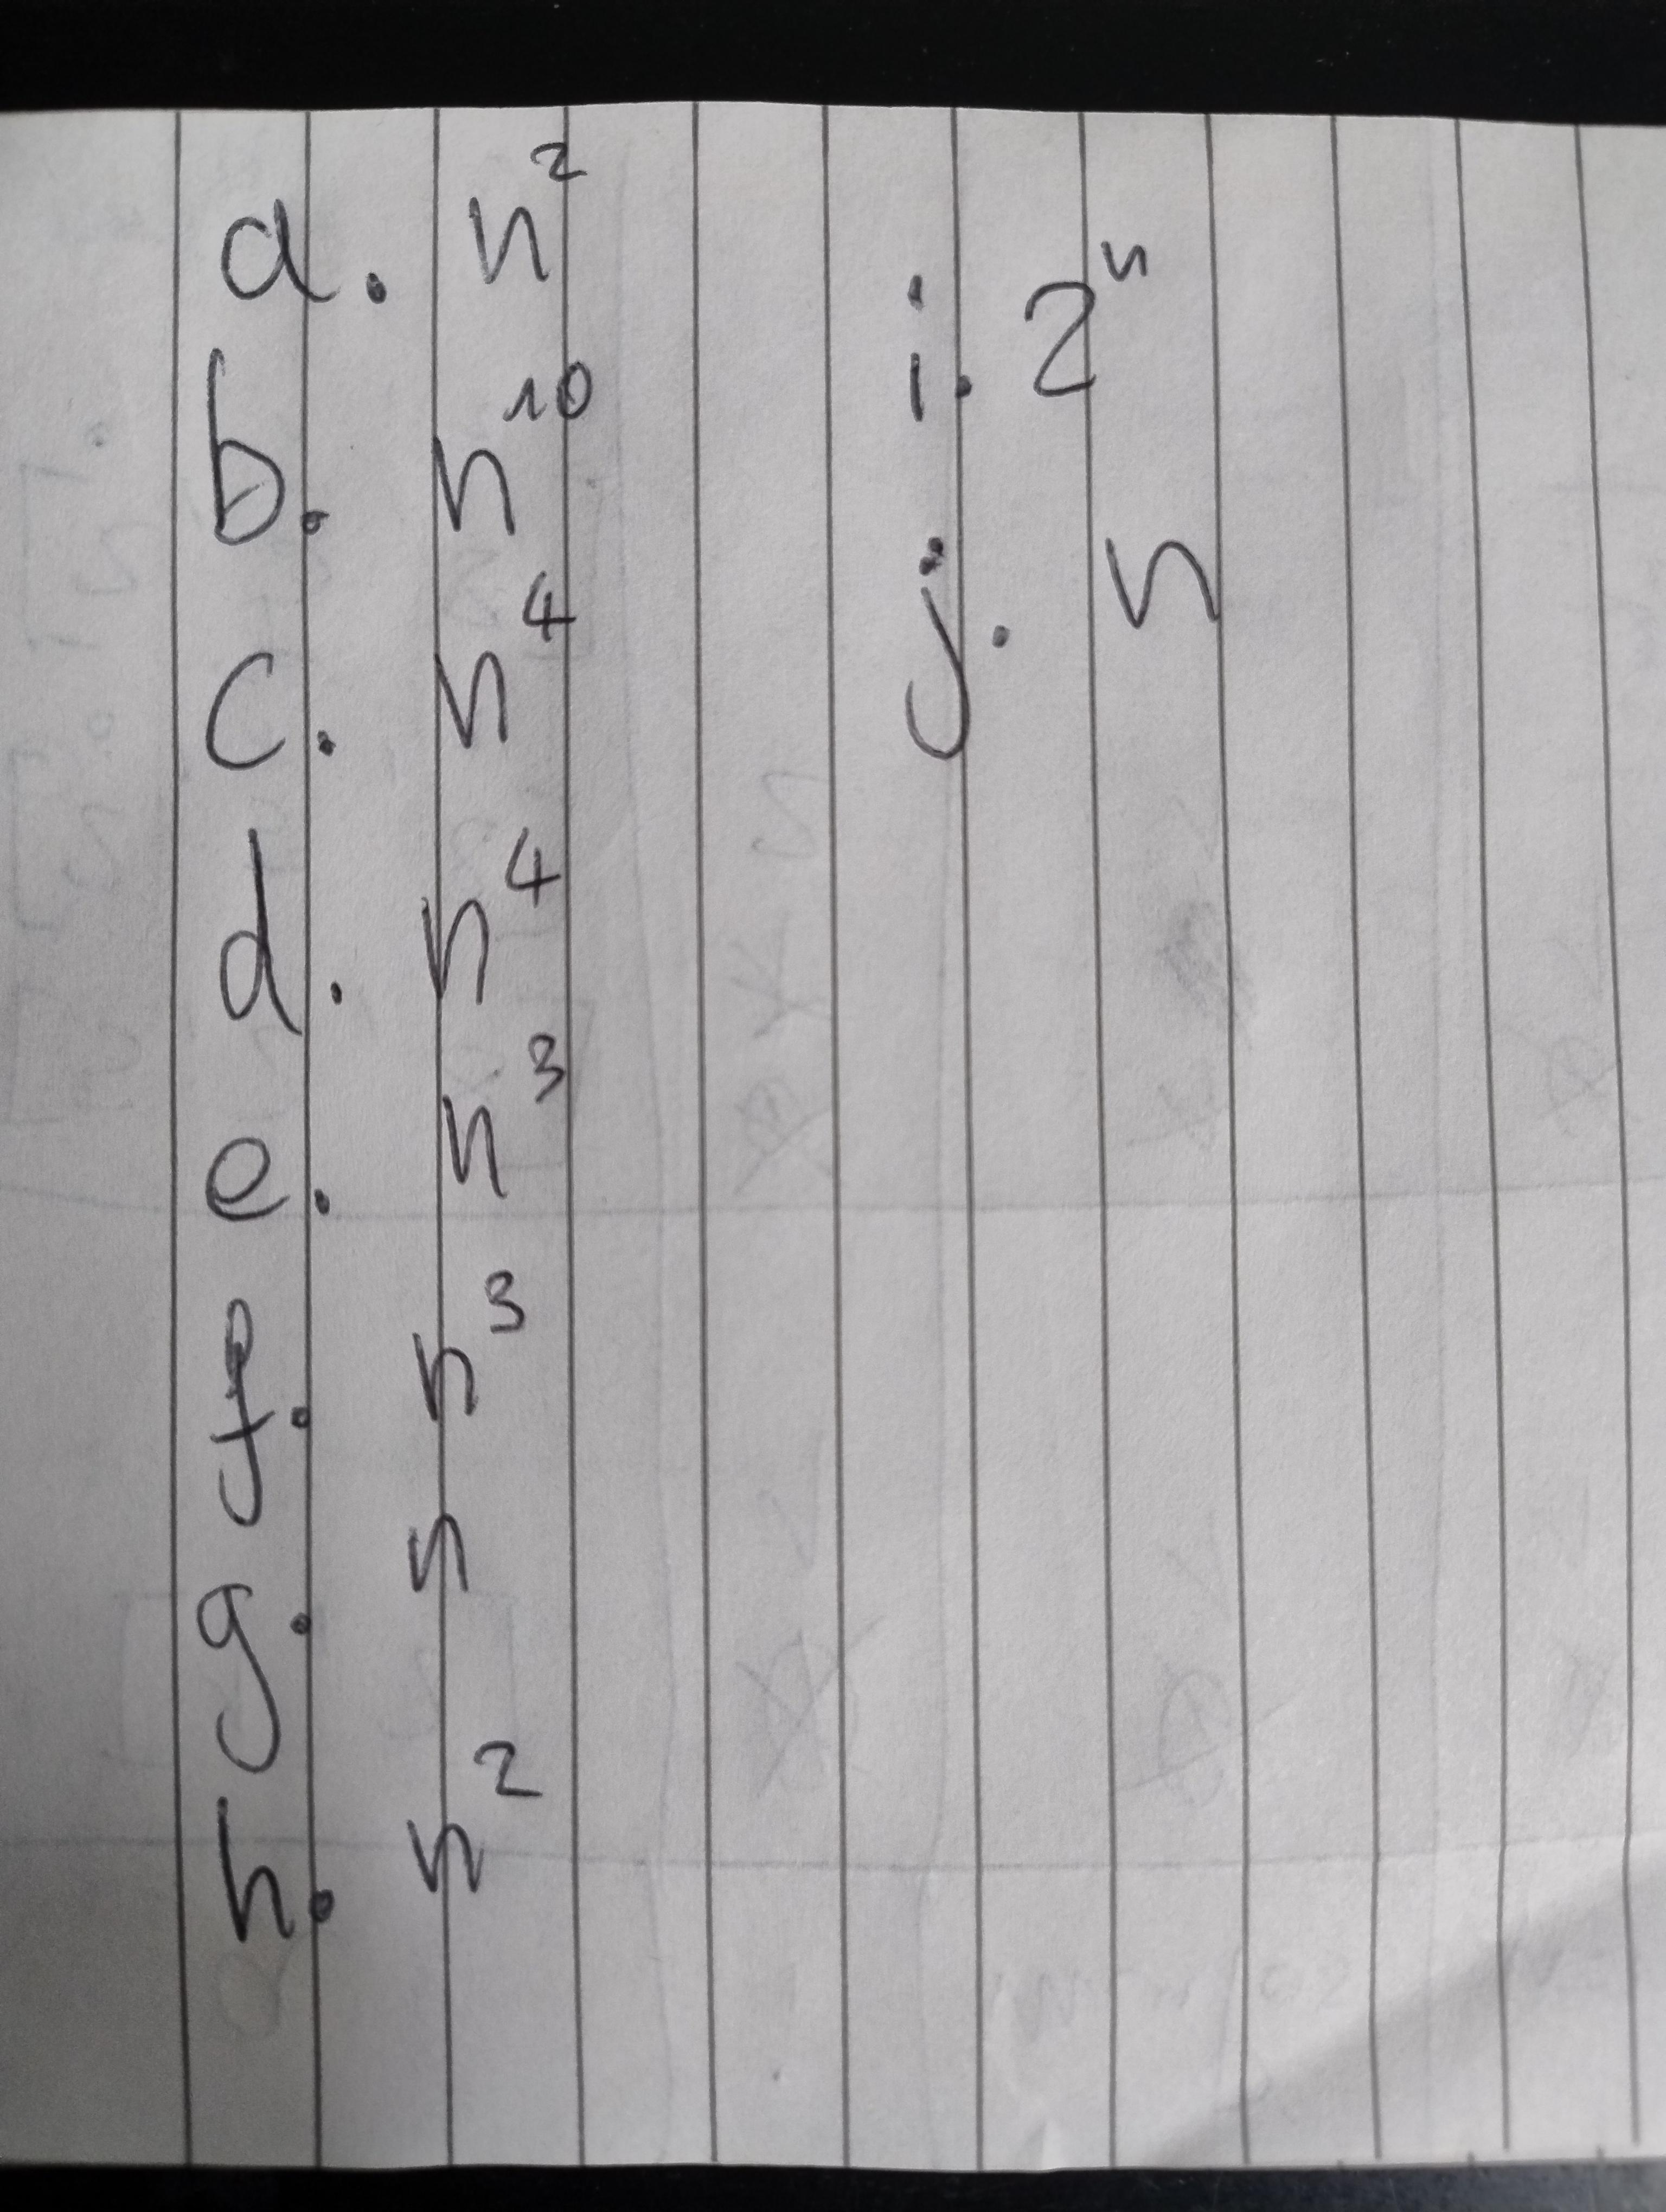 a. n²
b. n¹⁰
c. n⁴
d. n⁴
e. n³
f. n³
g. n
h. n²
i. 2ⁿ
j. n